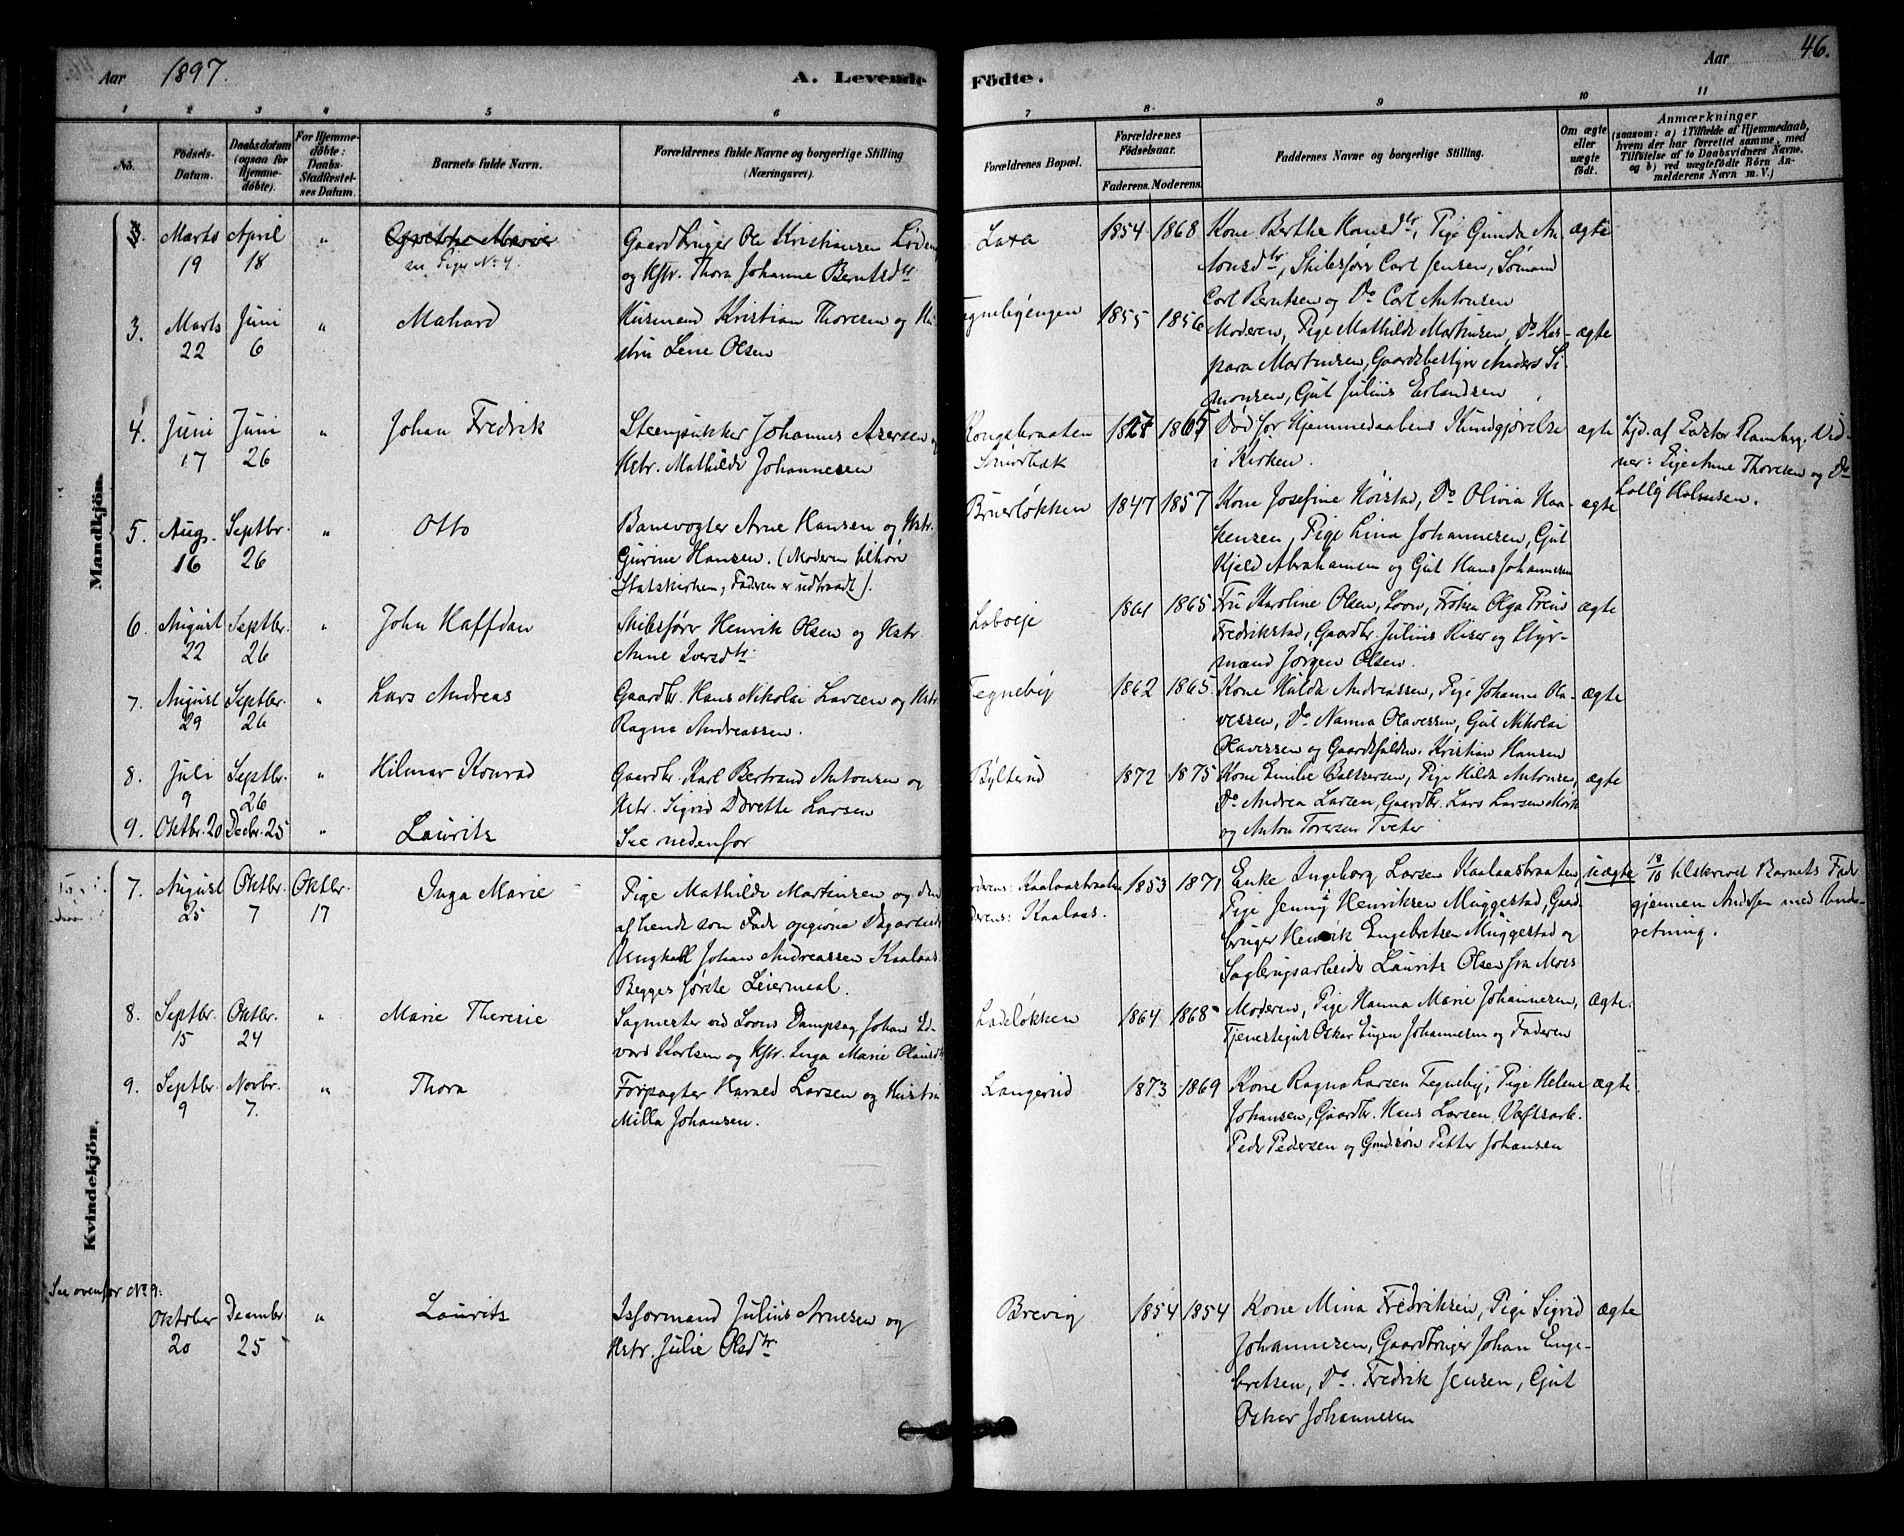 Aar 1897. A. Levende Födte. Aar 46.
1 2 3 4 5 6 7 8 9 10 11
No. Födsels-Datum. Daabsdatum (ogsaa for Hjemmedöbte). For Hjemmedöbte: Daabs-Stadfæstelses Datum. Barnets fulde Navn. Forældrenes fulde Navne og borgerlige Stilling (Næringsvei). Forældrenes Bopæl. Forældrenes Födselsaar. Faderens. Moderens. Faddernes Navne og borgerlige Stilling. Om ægte eller uægte födt. Anmærkninger (saasom: a) i Tilfælde af Hjemmedaab, hvem der har forrettet samme, med Tilföielse af to Daabsvidners Navne, og b) ved uægtefödte Börn Anmelderens Navn m. V.)
Mandkjön.
3. Marts 19 April 18 " Marie
se Pige No 4.
Gaardbruger Ole Kristiansen
og Hstr. Thora Johanne Berntsdtr
Laxa 1854 1868 Kone Berthe Hansdtr, Pige Gunda An-
tonsdtr, Skibsfører Carl Jensen, Sømand
Carl Berntsen og Do Carl Antonsen ægte
3. Marts 22 Juni 6 "
Husmand Kristian Thoresen og Hu-
stru Lene Olsen
Tegnebyengen 1855 1856 Moderen, Pige Mathilde Martinsen, Do Kas-
para Martinsen, Gaardsbestyrer Anders Si-
monsen, Gut Julius Erlandsen ægte
4. Juni 17 Juni 26 " Johan Fredrik
Steenhukker Johannes
Hstr. Mathilde Johannesen
Kongsbraaten 1865 Død før Hjemmedaabens Kundgjørelse
i Kirken. ægte
Hjd. af Pastor Ramberg. Vid-
ner: Pige Anne Thoresen og Do
Lolly Halvorsen.
5. Aug. 16 Septbr. 26 " Otto
Banevogter Arne Hansen og Hstr.
Gurine Hansen. (Moderen tilhører
Statskirken, Faderen er udtraadt).
Bruerløkken 1847 1857 Kone Josefine Høistad, Do Olivia Haa-
kensen, Pige Lina Johannesen, Gut
Kjeld Abrahamsen og Gut Hans Johannesen ægte
6. August 22 Septbr. 26 " John Halfdan
Skibsfører Henrik Olsen og Hstr.
Anne Iversdtr.
Labøeje 1861 1865 Fru Karoline Olsen, Soon, Frøken Olga
Fredrikstad, Gaardbr. Julius Riser og Styr-
mand Jørgen Olsen. ægte
7. August 29 Septbr. 26 " Lars Andreas
Gaardbr. Hans Nikolai Larsen og Hstr.
Ragna Andreassen.
Tegneby 1862 1865 Kone Hulda Andreassen, Pige Johanne Ola-
vessen, Do Nanna Olavessen, Gut Nikolai
Olavessen og Kristian Hansen ægte
8. Juli 9 Septbr. 26 " Hilmar Konrad
Gaardbr. Karl Bertrand Antonsen og
Hstr. Sigrid Dorette Larsen
Bylterud 1872 1875 Kone Emilie Baltsersen, Pige Hilda Antonsen,
Do Andrea Larsen, Gaardbr. Lars Larsen Mork
og Anton Toresen Tveter ægte
9. Oktbr. 20 Decbr. 25 " Laurits
See nedenfor
Kvindekjön.
7. August 25 Oktbr. 7 Oktbr. 17 Inga Marie
Pige Mathilde Martinsen og den
af hende som Fader opgivne Dagarbeider
Ungkarl Johan Andreassen Kaalaas.
Begges første Leiermaal.
Kaalaasbraaten
Kaalaas. 1853 1871 Enke Ingeborg Larsen Kaalaasbraaten,
Pige Jenny Henriksen Muggestad, Gaard-
bruger Henrik Engebretsen Muggestad og
Sagbrugsarbeider Laurits Olsen fra Moss uægte
18/10 tilskrevet Barnets Fader
gjennem Amtsen med Under-
retning.
8. Septbr. 15 Oktbr. 24 " Marie Therese
Sagmester ved Soons Dampsag Johan Ed-
vard Karlsen og Hstr. Inga Marie Olausdtr
Ladeløkken 1864 1868 Moderen, Pige Hanna Marie Johannesen,
Tjenestegut Oskar Eugen Johannesen og Faderen ægte.
9. Septbr. 9 Novbr. 7. " Thora
Forpagter Harald Larsen og Hustru
Milla Johansen.
Langerud 1873 1869 Kone Ragna Larsen Tegneby, Pige Helene
Johansen, Gaardbr. Hans Larsen, Værftsarb.
Peder Pedersen og Gmdsøn Petter Johansen ægte
See ovenfor No 9:
Oktober 20 December 25 " Laurits
Isformand Julius Arnesen og
Hstr. Julie Olsdtr.
Brevig 1854 1854 Kone Mina Fredriksen, Pige Sigrid
Johannesen, Gaardbruger Johan Enge-
bretsen, Do. Fredrik Jensen, Gut
Oskar Johannesen ægte